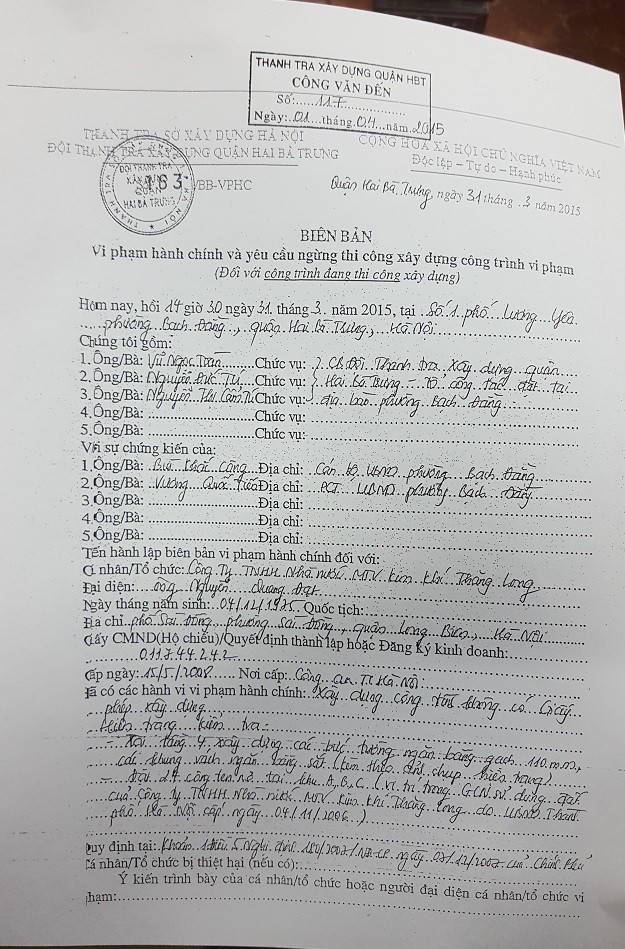 THANH TRA XÂY DỰNG QUẬN HBT
CÔNG VĂN ĐẾN
Số:......117...............
Ngày:..01...tháng.04...năm.2015
THANH TRA SỞ XÂY DỰNG HÀ NỘI
ĐỘI THANH TRA XÂY DỰNG QUẬN HAI BÀ TRƯNG
CỘNG HÒA XÃ HỘI CHỦ NGHĨA VIỆT NAM
Độc lập – Tự do – Hạnh phúc
ĐỘI THANH TRA
XÂY DỰNG
QUẬN
HAI BÀ TRƯNG
163/BB-VPHC
Quận Hai Bà Trưng, ngày 31 tháng .3 năm 2015
BIÊN BẢN
Vi phạm hành chính và yêu cầu ngừng thi công xây dựng công trình vi phạm
(Đối với công trình đang thi công xây dựng)
Hôm nay, hồi 14 giờ 30 ngày 31. tháng 3. năm 2015, tại ..Số 1 phố Lương Yên
phường Bạch Đằng, quận Hai Bà Trưng, Hà Nội
Chúng tôi gồm:
1. Ông/Bà: Vũ Ngọc ........Chức vụ: CB Đội Thanh Tra Xây dựng quận
2. Ông/Bà: Nguyễn Đức Tú...Chức vụ: Hai Bà Trưng - Tổ công tác đặt tại
3. Ông/Bà: Nguyễn Thị Cẩm Tú Chức vụ: địa bàn phường Bạch Đằng
4. Ông/Bà: ..........................Chức vụ: ..........................
5. Ông/Bà: ..........................Chức vụ: ..........................
Với sự chứng kiến của:
1. Ông/Bà: Bùi Khắc ....Địa chỉ: Cán bộ UBND phường Bạch Đằng
2. Ông/Bà: Vương Quốc Tiến Địa chỉ: PCT UBND phường Bạch Đằng
3. Ông/Bà: ..........................Địa chỉ: ..........................
4. Ông/Bà: ..........................Địa chỉ: ..........................
5. Ông/Bà: ..........................Địa chỉ: ..........................
Tến hành lập biên bản vi phạm hành chính đối với:
Cá nhân/Tổ chức: Công Ty TNHH Nhà nước MTV Kim Khí Thăng Long
Đại diện: ông Nguyễn Quang Đạt
Ngày tháng năm sinh: 04/12/1975. Quốc tịch:
Địa chỉ phố Sài Đồng, phường Sài Đồng, quận Long Biên, Hà Nội
Giấy CMND(Hộ chiếu)/Quyết định thành lập hoặc Đăng ký kinh doanh:
011744242
Cấp ngày: 15/5/2008...... Nơi cấp: Công an TP Hà Nội
Đã có các hành vi vi phạm hành chính: Xây dựng công trình không có Giấy
phép xây dựng
Hiện trạng kiểm tra:
- Tại tầng 4 xây dựng các bức tường ngăn bằng gạch 110 mm,
các khung vách ngăn bằng sắt (kèm theo ảnh chụp hiện trạng)
- Tại công ten nơ tại khu A, B, C (vị trí trong GCN sử dụng đất
của Công Ty TNHH Nhà nước MTV Kim khí Thăng Long do UBND Thành
phố Hà Nội cấp ngày 04/11/2006)
Quy định tại: Khoản 1 điều 5 Nghị định 180/2007/NĐ-CP ngày 07/12/2007 của Chính Phủ
Cá nhân/Tổ chức bị thiệt hại (nếu có):
Ý kiến trình bày của cá nhân/tổ chức hoặc người đại diện cá nhân/tổ chức vi
phạm: